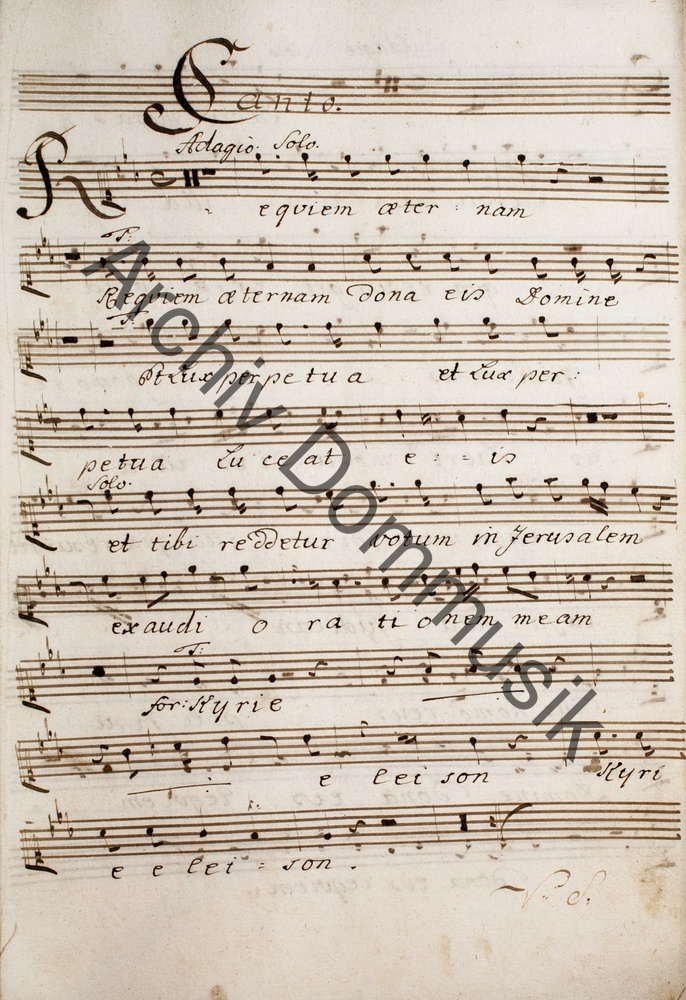 Canto.
Adagio. Solo.
Requiem æter: nam
T:
Requiem æternam dona eis Domine
T:
Et Lux perpetua et Lux per:
petua Luceat e : = is
Solo.
et tibi reddetur votum in Jerusalem
exaudi o ra ti onem meam
T:
for: Kyrie
e lei son Kyri
e e lei = son.
V: S:
Archiv Dommusik